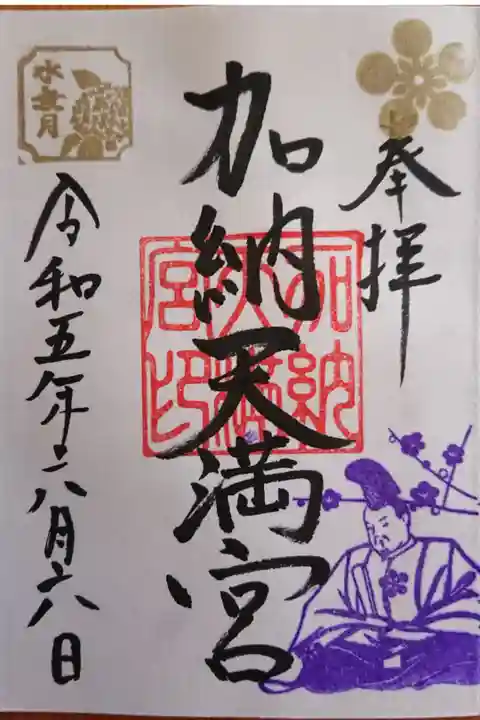 奉拝
加納天満宮
加納天満宮印
令和五年六月六日
水無月